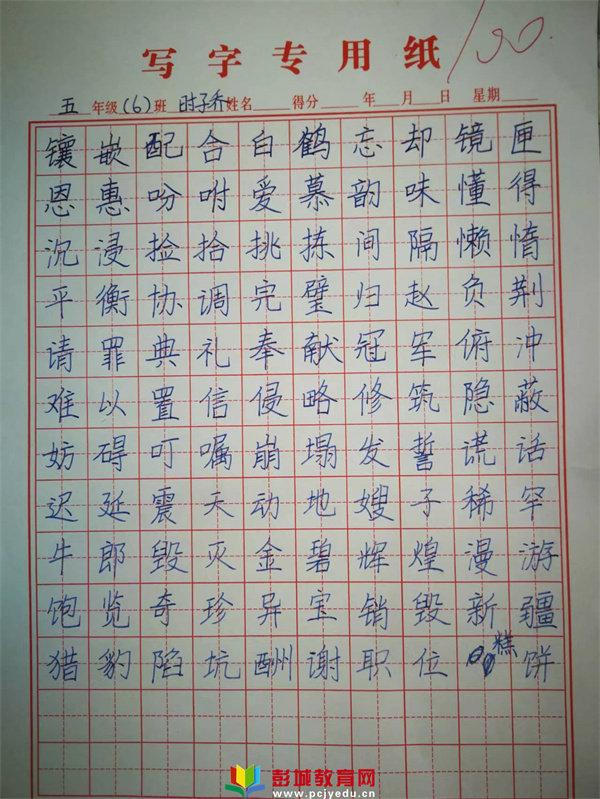 写字专用纸
100
五年级(6)班 时子乔姓名 得分 年 月 日 星期
镶嵌配合白鹤忘却镜匣
恩惠吩咐爱慕韵味懂得
沉浸捡拾挑拣间隔懒惰
平衡协调完璧归赵负荆
请罪典礼奉献冠军俯冲
难以置信侵略修筑隐蔽
妨碍叮嘱崩塌发誓谎话
迟延震天动地嫂子稀罕
牛郎毁灭金碧辉煌漫游
饱览奇珍异宝销毁新疆
猎豹陷坑酬谢职位糕饼
彭城教育网
www.pcjyedu.cn